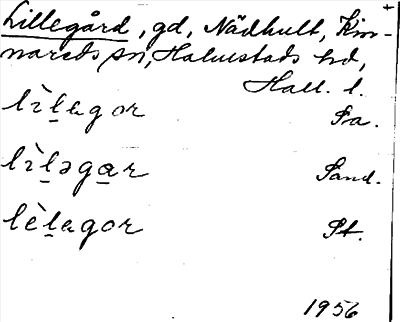 Lillegård, gd, Nädhult, Kin-
nareds sn, Halmstads hd,
Hall. l.
lìl̲agor Fra.
lìl̲əga̲r Sand.
lèl̲agor St.
1956